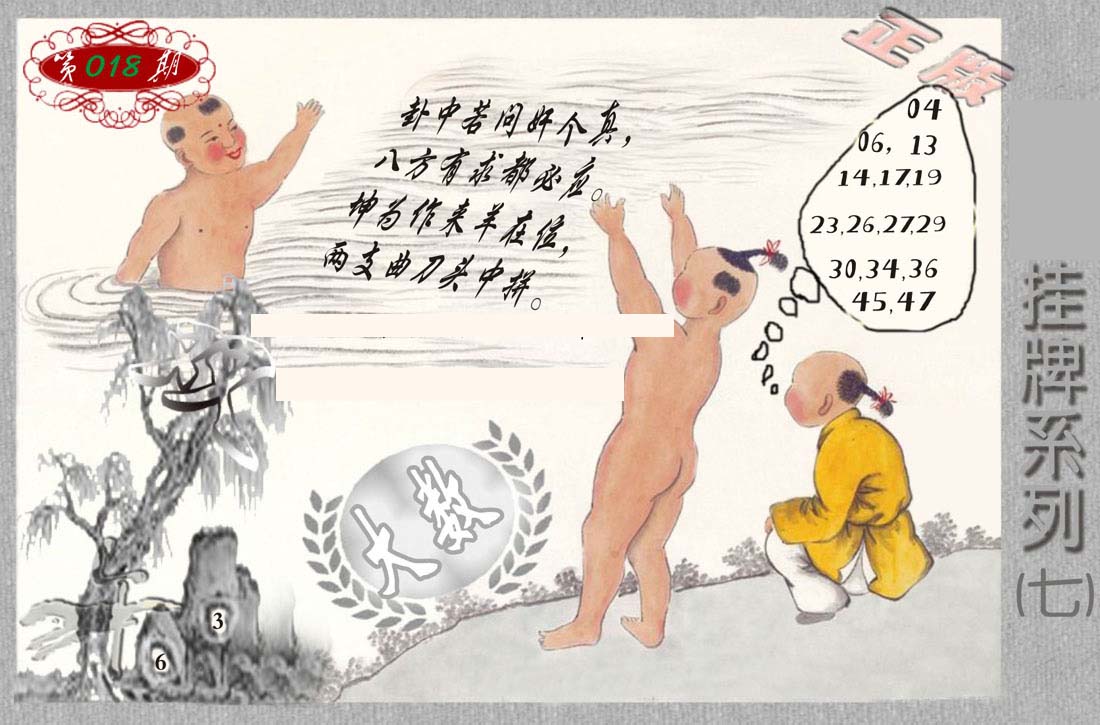 第018期
正版
卦中若问好个真，
八方有求都必应。
坤为作来羊在位，
两支曲刀头中拼。
04
06, 13
14,17,19
23,26,27,29
30,34,36
45,47
大数
3
6
挂牌系列(七)